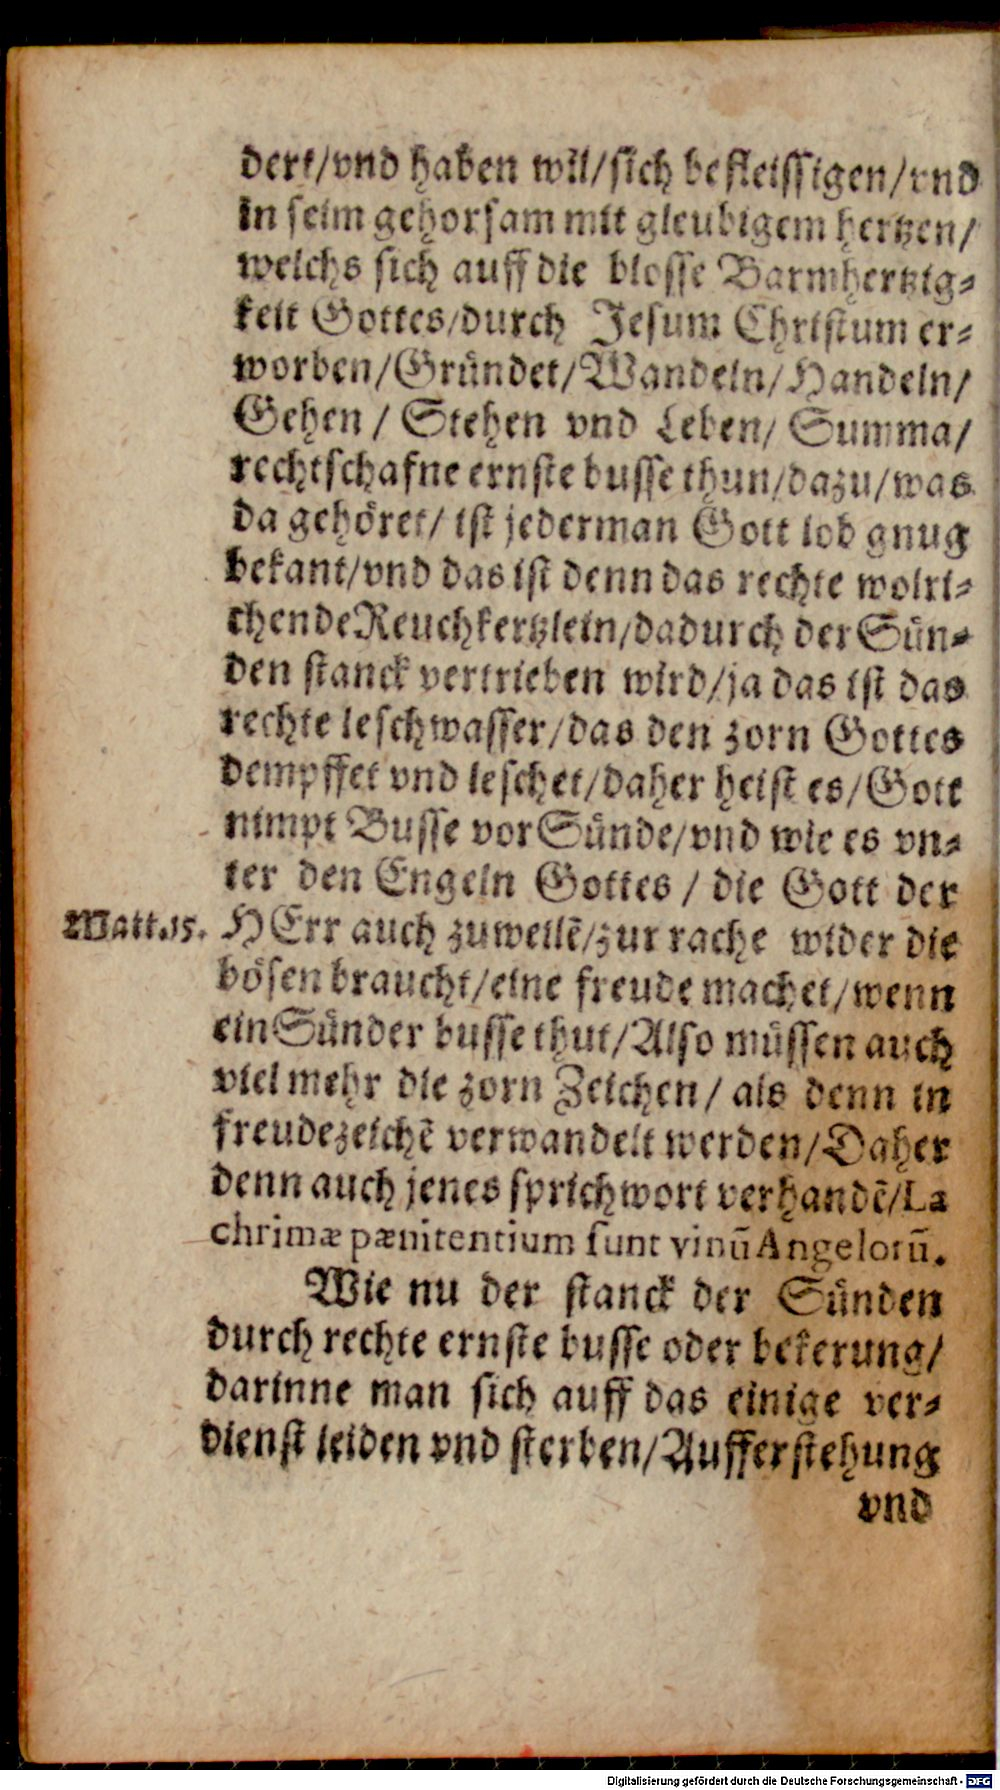 dert/vnd haben wil/sich befleissigen/vnd
in seim gehorsam mit gleubigem hertzen/
welchs sich auff die blosse Barmhertzig-
keit Gottes/durch Jesum Christum er-
worben/Gründet/Wandeln/Handeln/
Gehen / Stehen vnd Leben/ Summa/
rechtschafne ernste busse thun/dazu/was
da gehöret/ ist jederman Gott lob gnug
bekant/vnd das ist denn das rechte wolri-
chende Reuchkertzlein/dadurch der Sün-
den stanck vertrieben wird/ja das ist das
rechte leschwasser/das den zorn Gottes
dempffet vnd leschet/daher heist es/Gott
nimpt Busse vor Sünde/vnd wie es vn-
ter den Engeln Gottes / die Gott der
Matt.15. HErr auch zuweilẽ/zur rache wider die
bösen braucht/eine freude machet/wenn
ein Sünder busse thut/Also müssen auch
viel mehr die zorn Zeichen/ als denn in
freudezeichẽ verwandelt werden/Daher
denn auch jenes sprichwort verhandẽ/La
chrimæ pænitentium sunt vinũ Angelorũ.
Wie nu der stanck der Sünden
durch rechte ernste busse oder bekerung/
darinne man sich auff das einige ver-
dienst leiden vnd sterben/Aufferstehung
vnd
Digitalisierung gefördert durch die Deutsche Forschungsgemeinschaft - DFG